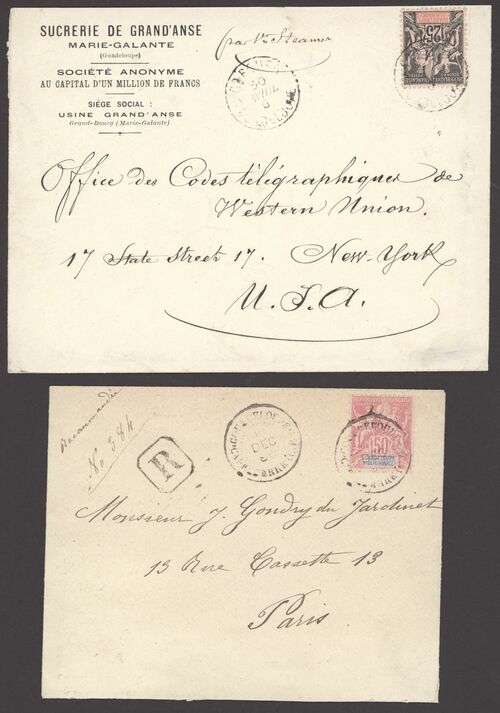 SUCRERIE DE GRAND'ANSE
MARIE-GALANTE
(Guadeloupe)
SOCIÉTÉ ANONYME
AU CAPITAL D'UN MILLION DE FRANCS
SIÈGE SOCIAL :
USINE GRAND'ANSE
Grand-Bourg (Marie-Galante)
par Vr Steamer
25
Office des Codes télégraphiques de
Western Union.
17 State Street 17. New-York
U.S.A.
Recommandée
No 384
R
DEC
50
Monsieur J. Gondry du Jardinet
13 Rue Cassette 13
Paris